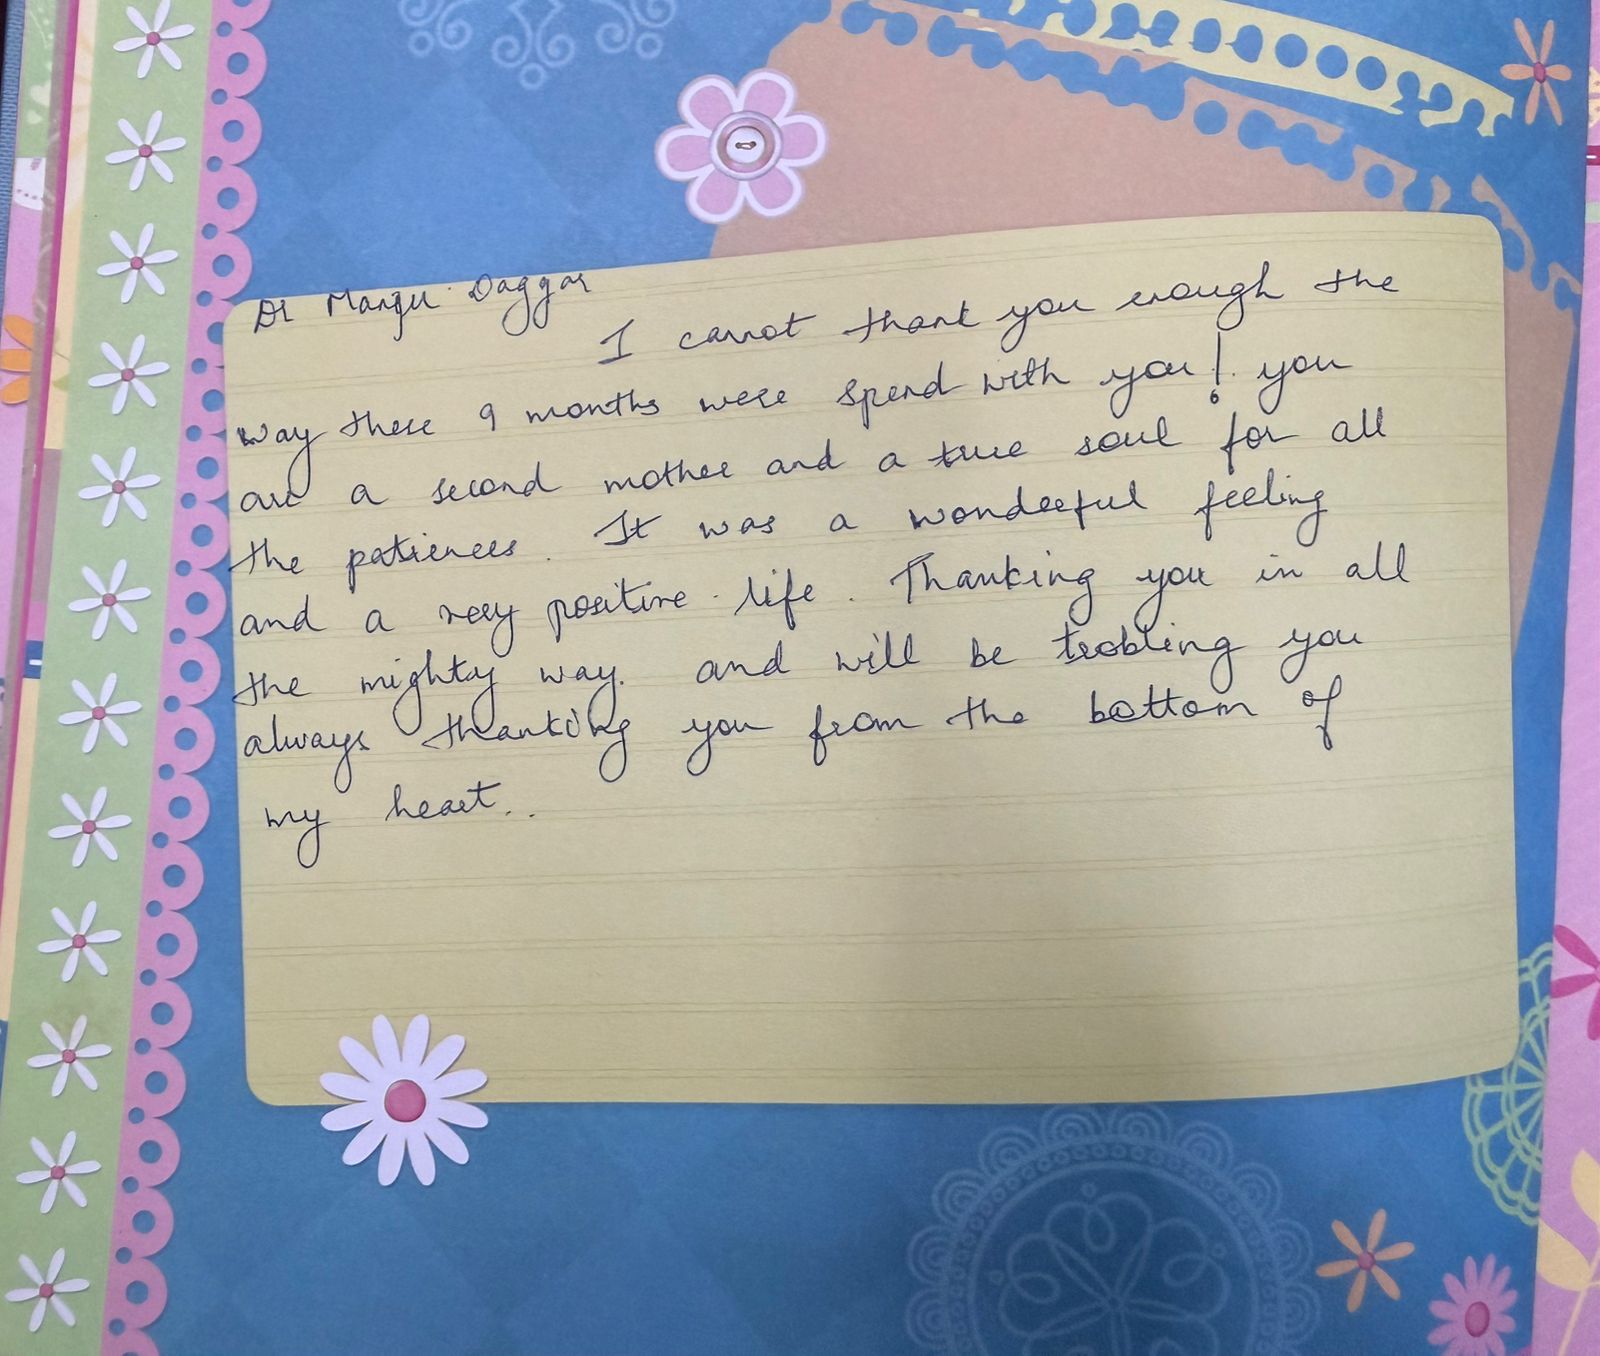 Dr Manju Daggar
I cannot thank you enough the
way these 9 months were spend with you! you
are a second mother and a true soul for all
the patiences. It was a wonderful feeling
and a very positive life. Thanking you in all
the mighty way. and will be trobling you
always thanking you from the bottom of
my heart..